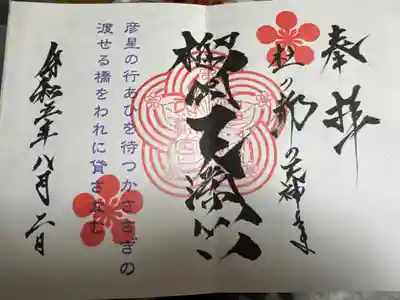 奉拝
杜の都の天神さま
榴岡天満宮
彦星の行あひを待つかささぎの
渡せる橋をわれに貸さなむ
令和三年八月二日